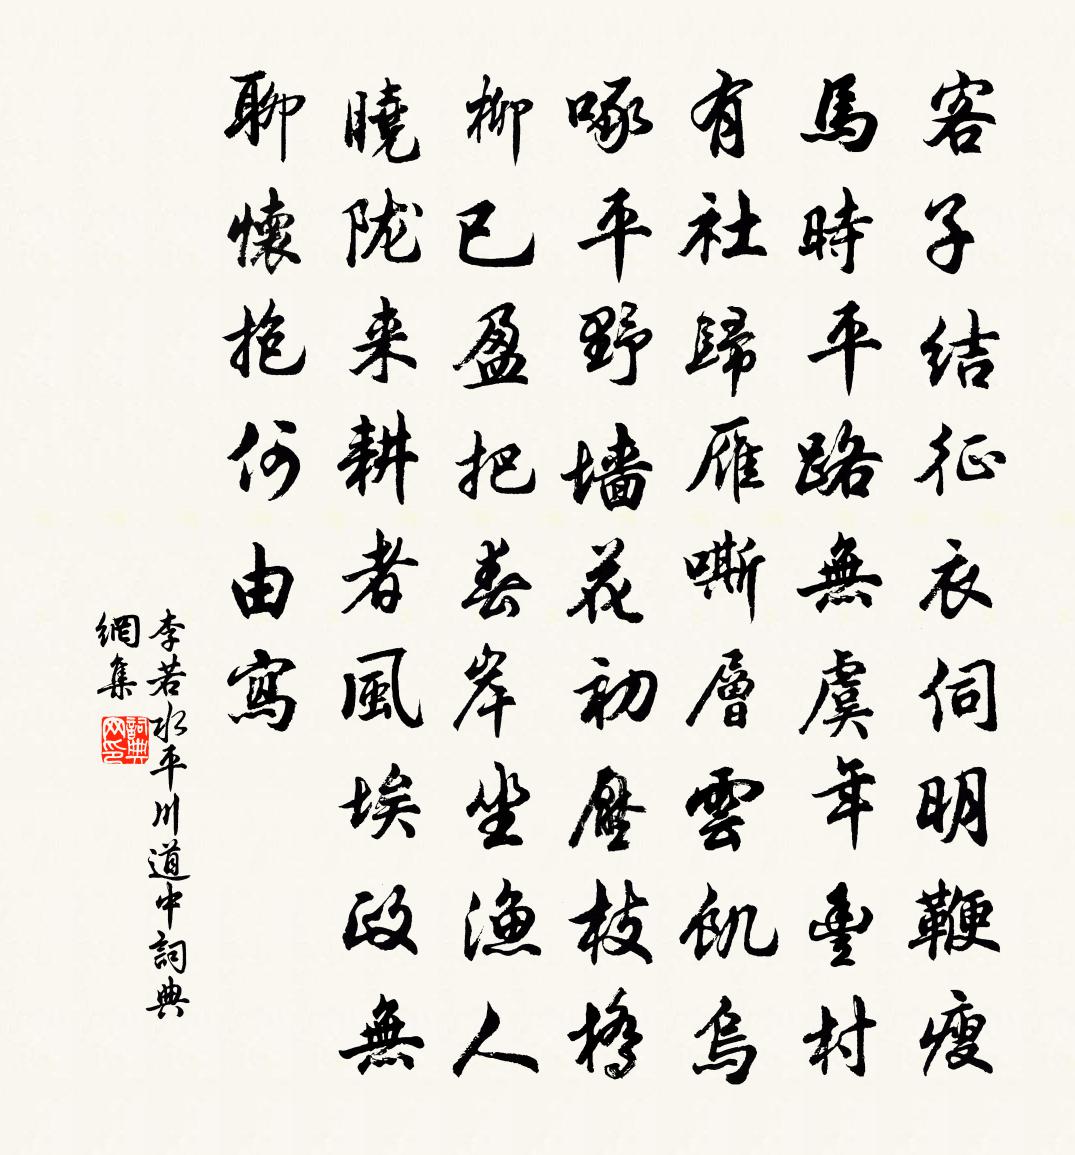 客子结征衣伺明鞭瘦
馬時平路無虞年豊村
有社歸雁嘶層雲飢烏
啄平野墙花初壓枝橋
柳已盈把春岸坐漁人
曉陇来耕者風埃政無
聊懷抱何由寫
李若水平川道中詞典
網集
詞典
网印